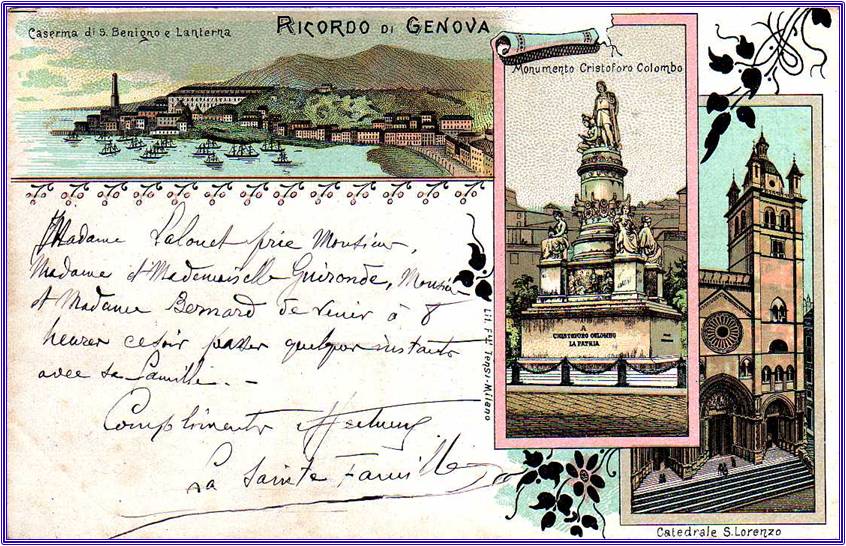 Caserma di S. Benigno e Lanterna
RICORDO DI GENOVA
Monumento Cristoforo Colombo
A
CRISTOFORO COLOMBO
LA PATRIA
Catedrale S. Lorenzo
Lit. F.lli Tensi-Milano
Madame Lalouet prie Monsieur,
Madame & Mademoiselle Guironde, Monsieur
& Madame Bernard de venir à 8
heures ce soir passer quelques instants
avec sa famille. -
Compliments
La Sainte Famille